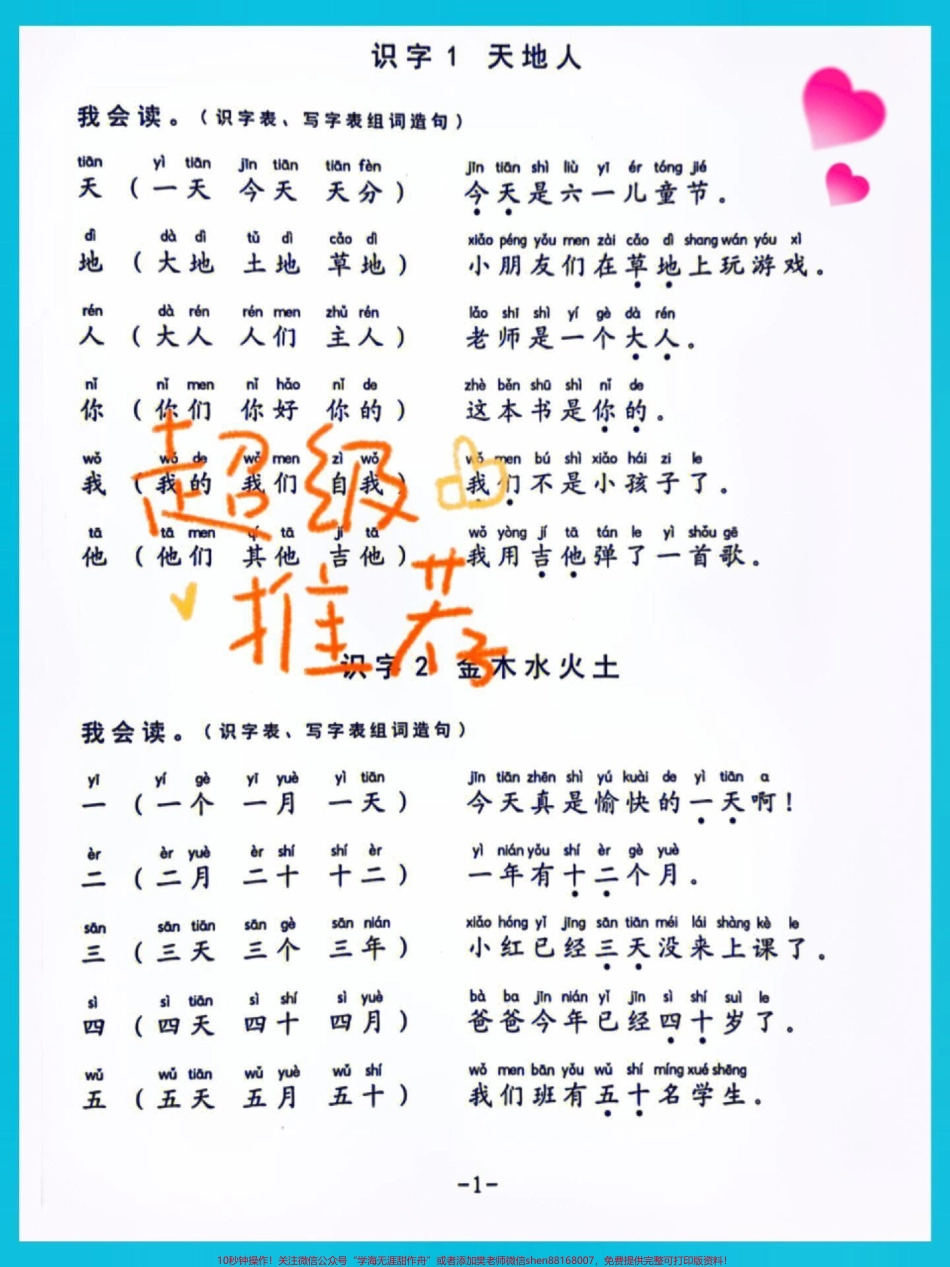 识字1 天地人
我会读。(识字表、写字表组词造句)
tiān yì tiān jīn tiān tiān fèn jīn tiān shì liù yī ér tóng jié
天 ( 一天 今天 天分 ) 今天是六一儿童节。
dì dà dì tǔ dì cǎo dì xiǎo péng yǒu men zài cǎo dì shang wán yóu xì
地 ( 大地 土地 草地 ) 小朋友们在草地上玩游戏。
rén dà rén rén men zhǔ rén lǎo shī shì yí gè dà rén
人 ( 大人 人们 主人 ) 老师是一个大人。
nǐ nǐ men nǐ hǎo nǐ de zhè běn shū shì nǐ de
你 ( 你们 你好 你的 ) 这本书是你的。
wǒ wǒ de wǒ men zì wǒ wǒ men bú shì xiǎo hái zi le
我 ( 我的 我们 自我 ) 我们不是小孩子了。
超级
tā tā men qí tā jí tā wǒ yòng jí tā tán le yì shǒu gē
他 ( 他们 其他 吉他 ) 我用吉他弹了一首歌。
推荐
识字2 金木水火土
我会读。(识字表、写字表组词造句)
yī yí gè yī yuè yì tiān jīn tiān zhēn shì yú kuài de yì tiān a
一 ( 一个 一月 一天 ) 今天真是愉快的一天啊!
èr èr yuè èr shí shí èr yì nián yǒu shí èr gè yuè
二 ( 二月 二十 十二 ) 一年有十二个月。
sān sān tiān sān gè sān nián xiǎo hóng yǐ jīng sān tiān méi lái shàng kè le
三 ( 三天 三个 三年 ) 小红已经三天没来上课了。
sì sì tiān sì shí sì yuè bà ba jīn nián yǐ jīn sì shí suì le
四 ( 四天 四十 四月 ) 爸爸今年已经四十岁了。
wǔ wǔ tiān wǔ yuè wǔ shí wǒ men bān yǒu wǔ shí míng xué shēng
五 ( 五天 五月 五十 ) 我们班有五十名学生。
-1-
10秒钟操作！关注微信公众号“学海无涯甜作舟”或者添加樊老师微信shen88168007，免费提供完整可打印版资料！